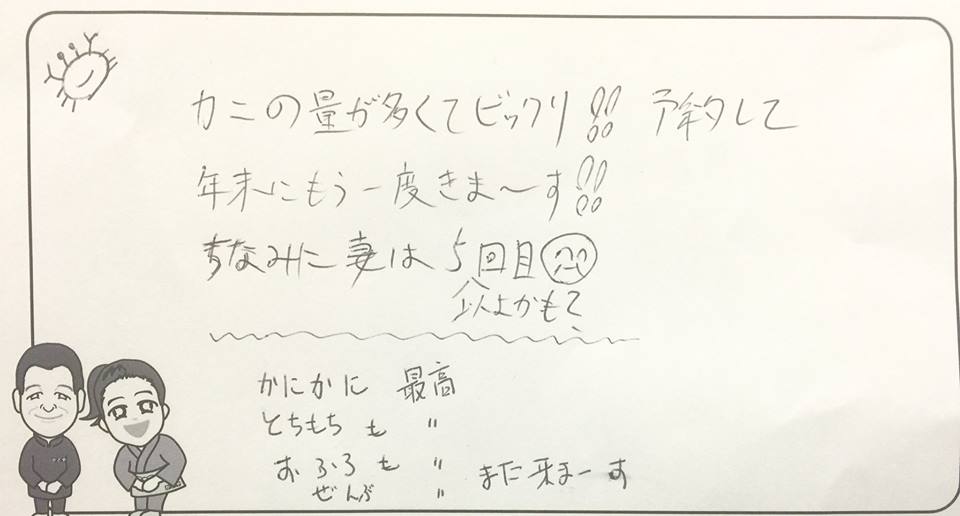 カニの量が多くてビックリ!! 予約して
年末にもう一度きま〜す!!
ちなみに妻は5回目
以上かもて
かにかに 最高
とちもちも 〃
おふろも 〃 また来まーす
ぜんぶ 〃